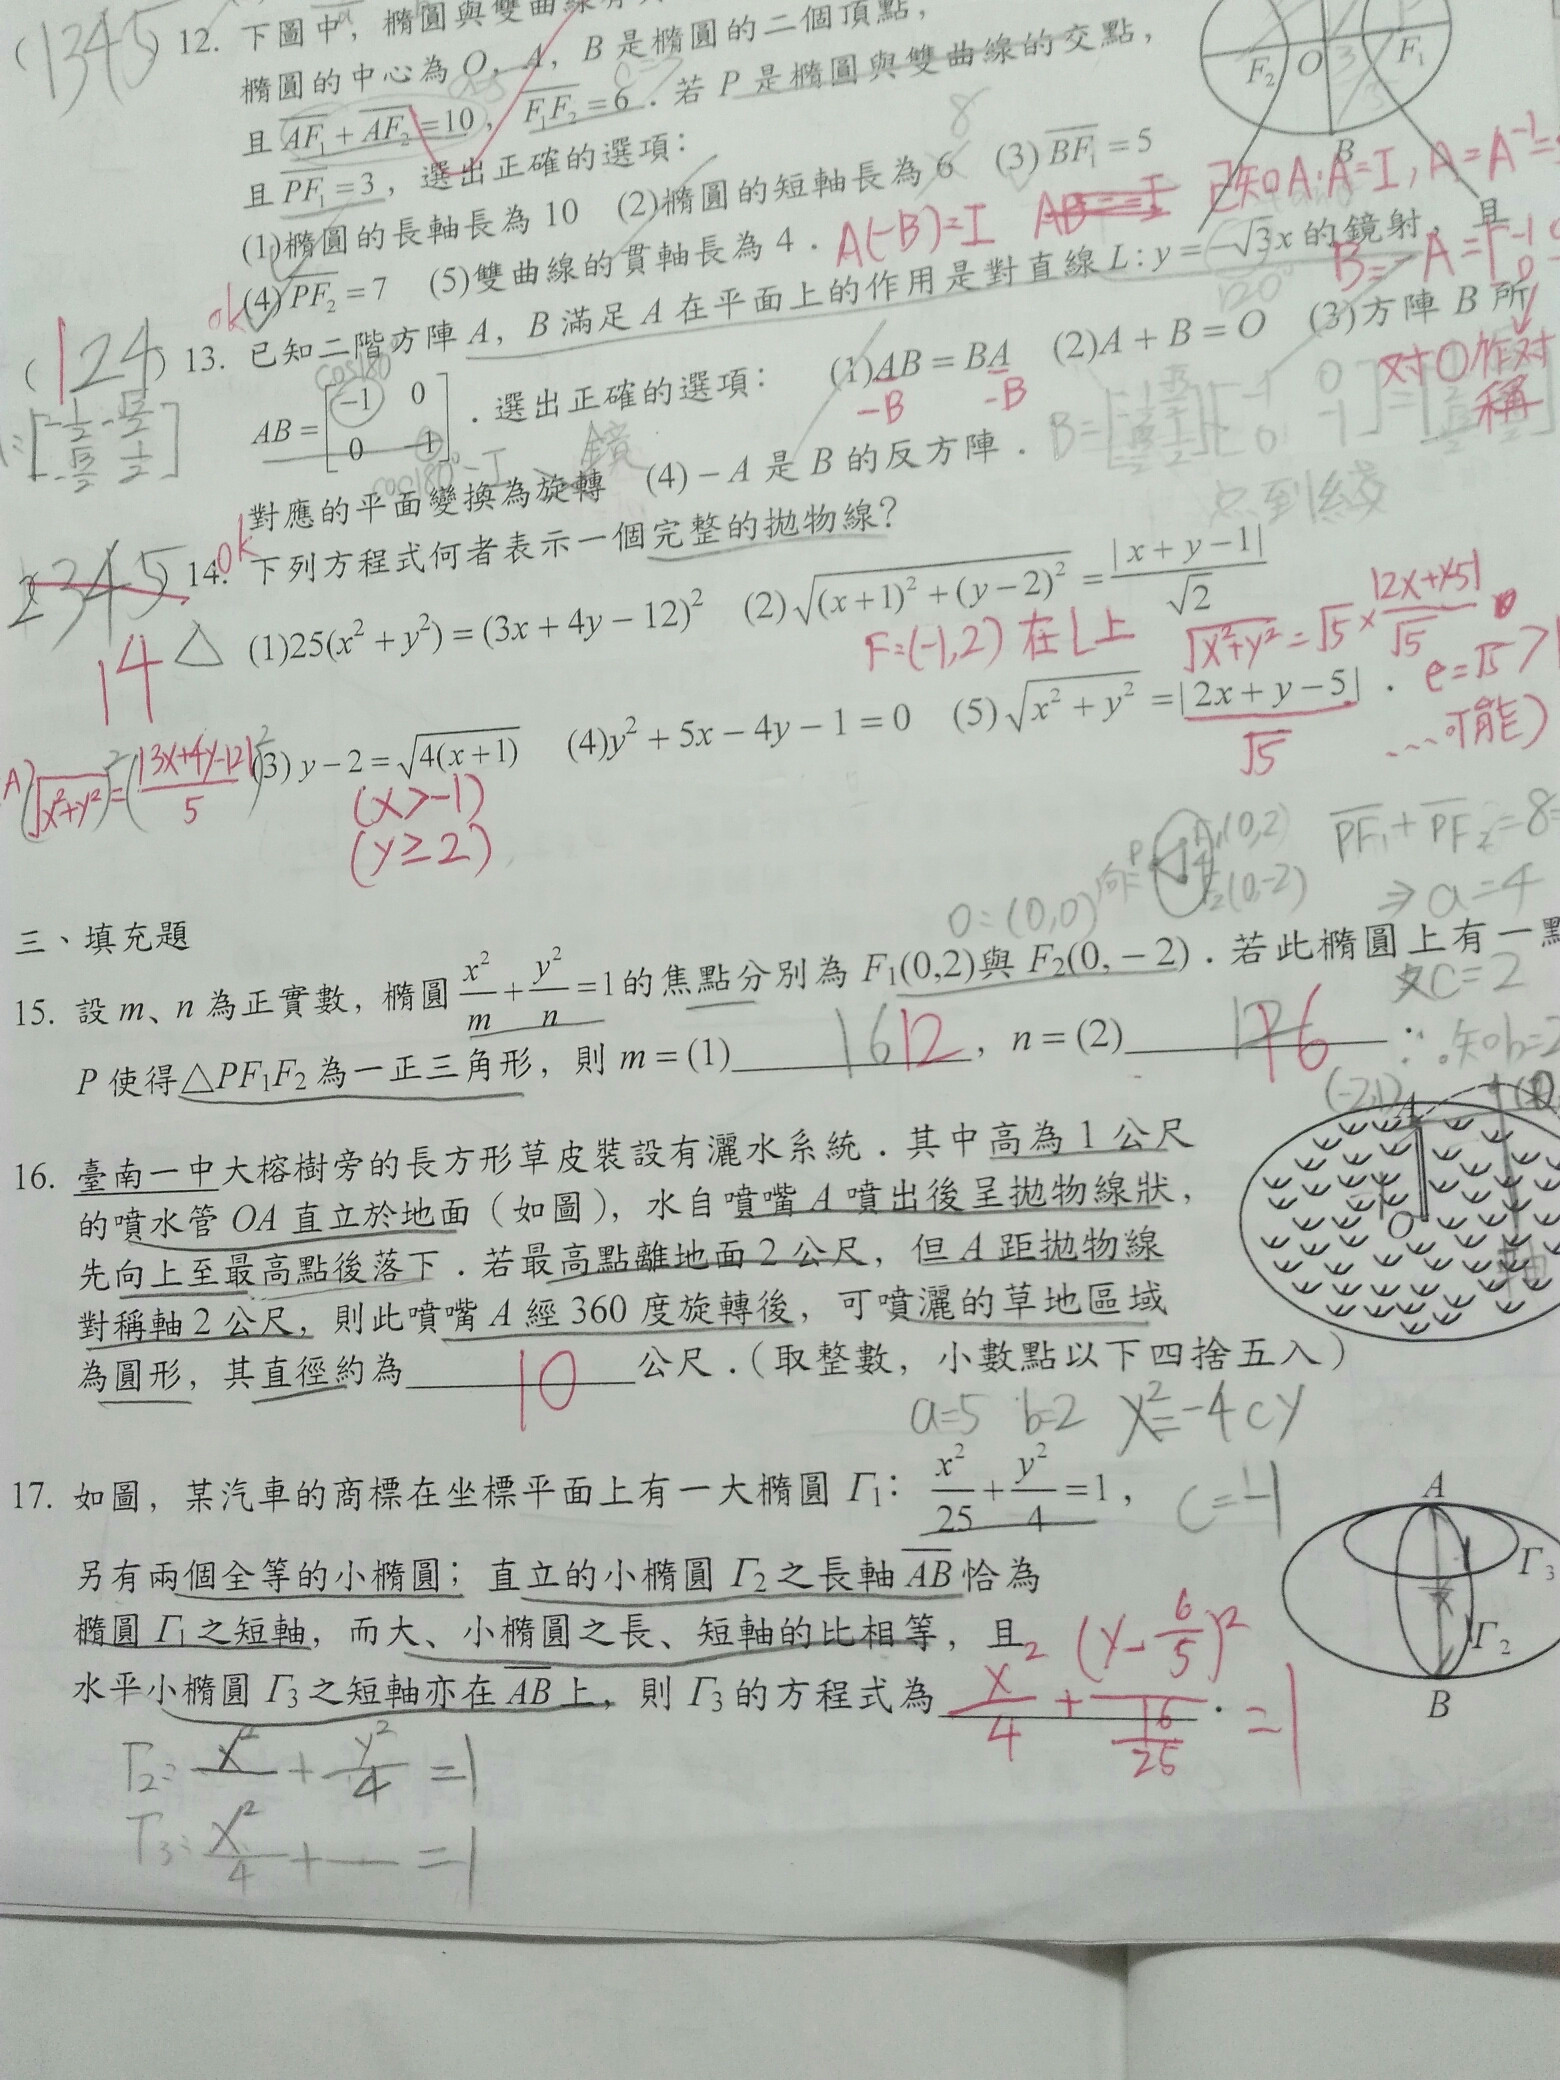 (1345) 12. 下圖中，橢圓與雙曲線
橢圓的中心為 O，A，B 是橢圓的二個頂點，
且 AF₁ + AF₂ = 10，F₁F₂ = 6．若 P 是橢圓與雙曲線的交點，
且 PF₁ = 3，選出正確的選項：
(1)橢圓的長軸長為 10 (2)橢圓的短軸長為 6 (3) BF₁ = 5
8
(4) PF₂ = 7 (5)雙曲線的貫軸長為 4．
F₂ O F₁
3
B
A(-B)=I
已知A·A=I, A=A⁻¹=
B=-A=
ok
(124) 13. 已知二階方陣 A，B 滿足 A 在平面上的作用是對直線 L: y = −√3x 的鏡射，且
120°
AB = [−1 0
0 −1]．選出正確的選項： (1)AB = BA (2)A + B = O (3)方陣 B 所
-B -B
cos180
对O作对
稱
對應的平面變換為旋轉 (4) − A 是 B 的反方陣．
鏡
点到綫
ok
2345 14. 下列方程式何者表示一個完整的拋物線？
14 △ (1)25(x² + y²) = (3x + 4y − 12)² (2)√((x+1)² + (y−2)²) = |x + y − 1|/√2
F=(-1,2) 在L上
√(x²+y²) = √5 × |2x+y-5|/√5
e=√5>1
(√(x²+y²))²=(|3x+4y-12|/5)²
(3) y − 2 = √(4(x+1)) (4)y² + 5x − 4y − 1 = 0 (5)√(x² + y²) = |2x + y − 5|．
√5
…可能)
(x>-1)
(y≥2)
A₁(0,2)
F₂(0,-2)
PF₁+PF₂=8=
O=(0,0)
⇒a=4
三、填充題
15. 設 m、n 為正實數，橢圓 x²/m + y²/n = 1 的焦點分別為 F₁(0,2)與 F₂(0, − 2)．若此橢圓上有一點
又c=2
P 使得△PF₁F₂ 為一正三角形，則 m = (1) 16 12 ，n = (2) 12 16
∴知b=2
(-2,1)
16. 臺南一中大榕樹旁的長方形草皮裝設有灑水系統．其中高為 1 公尺
的噴水管 OA 直立於地面（如圖），水自噴嘴 A 噴出後呈拋物線狀，
先向上至最高點後落下．若最高點離地面 2 公尺，但 A 距拋物線
對稱軸 2 公尺，則此噴嘴 A 經 360 度旋轉後，可噴灑的草地區域
為圓形，其直徑約為 10 公尺．（取整數，小數點以下四捨五入）
A
O
軸
a=5 b=2 x²=-4cy
17. 如圖，某汽車的商標在坐標平面上有一大橢圓 Γ₁：x²/25 + y²/4 = 1，
c=-1
另有兩個全等的小橢圓；直立的小橢圓 Γ₂ 之長軸 AB 恰為
橢圓 Γ₁ 之短軸，而大、小橢圓之長、短軸的比相等，且
水平小橢圓 Γ₃ 之短軸亦在 AB 上，則 Γ₃ 的方程式為 x²/4 + (y-6/5)²/(16/25) ． =1
A
Γ₃
Γ₂
B
Γ₂: x²/ + y²/4 =1
Γ₃: x²/4 + — =1